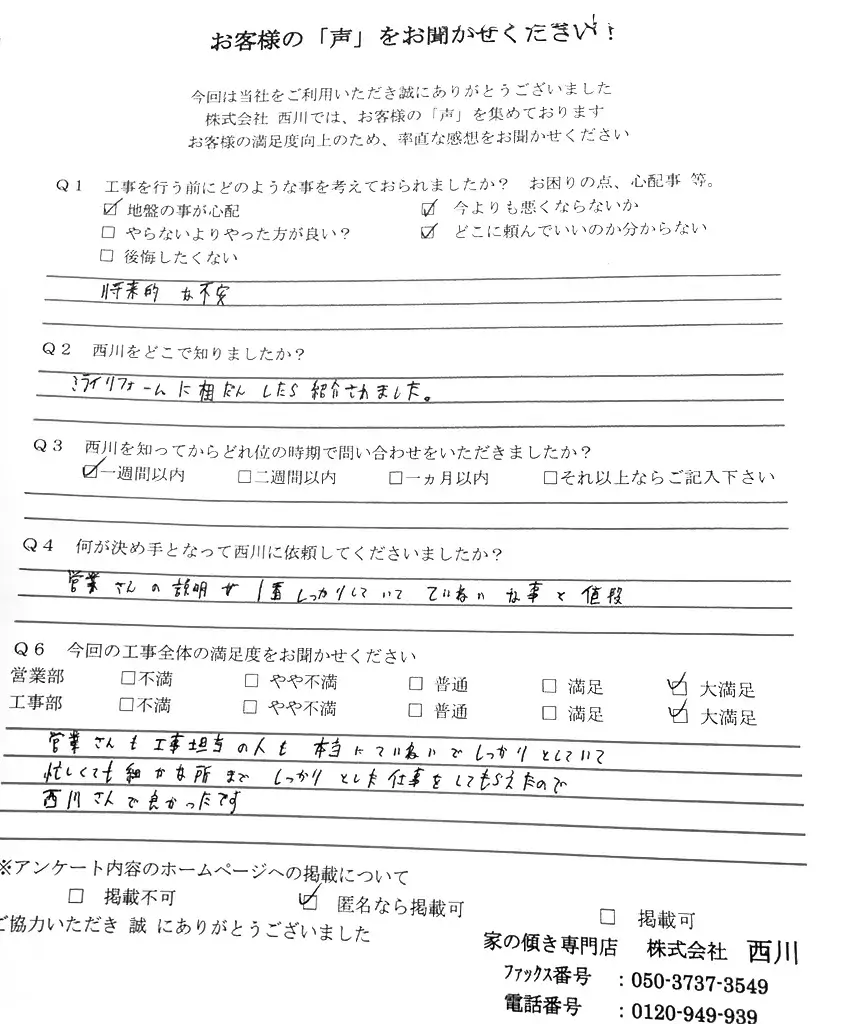 お客様の「声」をお聞かせください！
今回は当社をご利用いただき誠にありがとうございました
株式会社 西川では、お客様の「声」を集めております
お客様の満足度向上のため、率直な感想をお聞かせください
Ｑ１ 工事を行う前にどのような事を考えておられましたか？ お困りの点、心配事 等。
☑ 地盤の事が心配 ☑ 今よりも悪くならないか
□ やらないよりやった方が良い？ ☑ どこに頼んでいいのか分からない
□ 後悔したくない
将来的な不安
Ｑ２ 西川をどこで知りましたか？
ミライリフォームに相だんしたら紹介されました。
Ｑ３ 西川を知ってからどれ位の時期で問い合わせをいただきましたか？
☑一週間以内 □二週間以内 □一ヵ月以内 □それ以上ならご記入下さい
Ｑ４ 何が決め手となって西川に依頼してくださいましたか？
営業さんの説明が1番しっかりしていて ていねいな事と値段
Ｑ６ 今回の工事全体の満足度をお聞かせください
営業部 □不満 □ やや不満 □ 普通 □ 満足 ☑ 大満足
工事部 □不満 □ やや不満 □ 普通 □ 満足 ☑ 大満足
営業さんも工事担当の人も 本当にていねいでしっかりとしていて
忙しくても細かな所まで しっかりとした仕事をしてもらえたので
西川さんで良かったです
※アンケート内容のホームページへの掲載について
□ 掲載不可 ☑ 匿名なら掲載可 □ 掲載可
ご協力いただき 誠 にありがとうございました
家の傾き専門店 株式会社 西川
ファックス番号 ：050-3737-3549
電話番号 ：0120-949-939